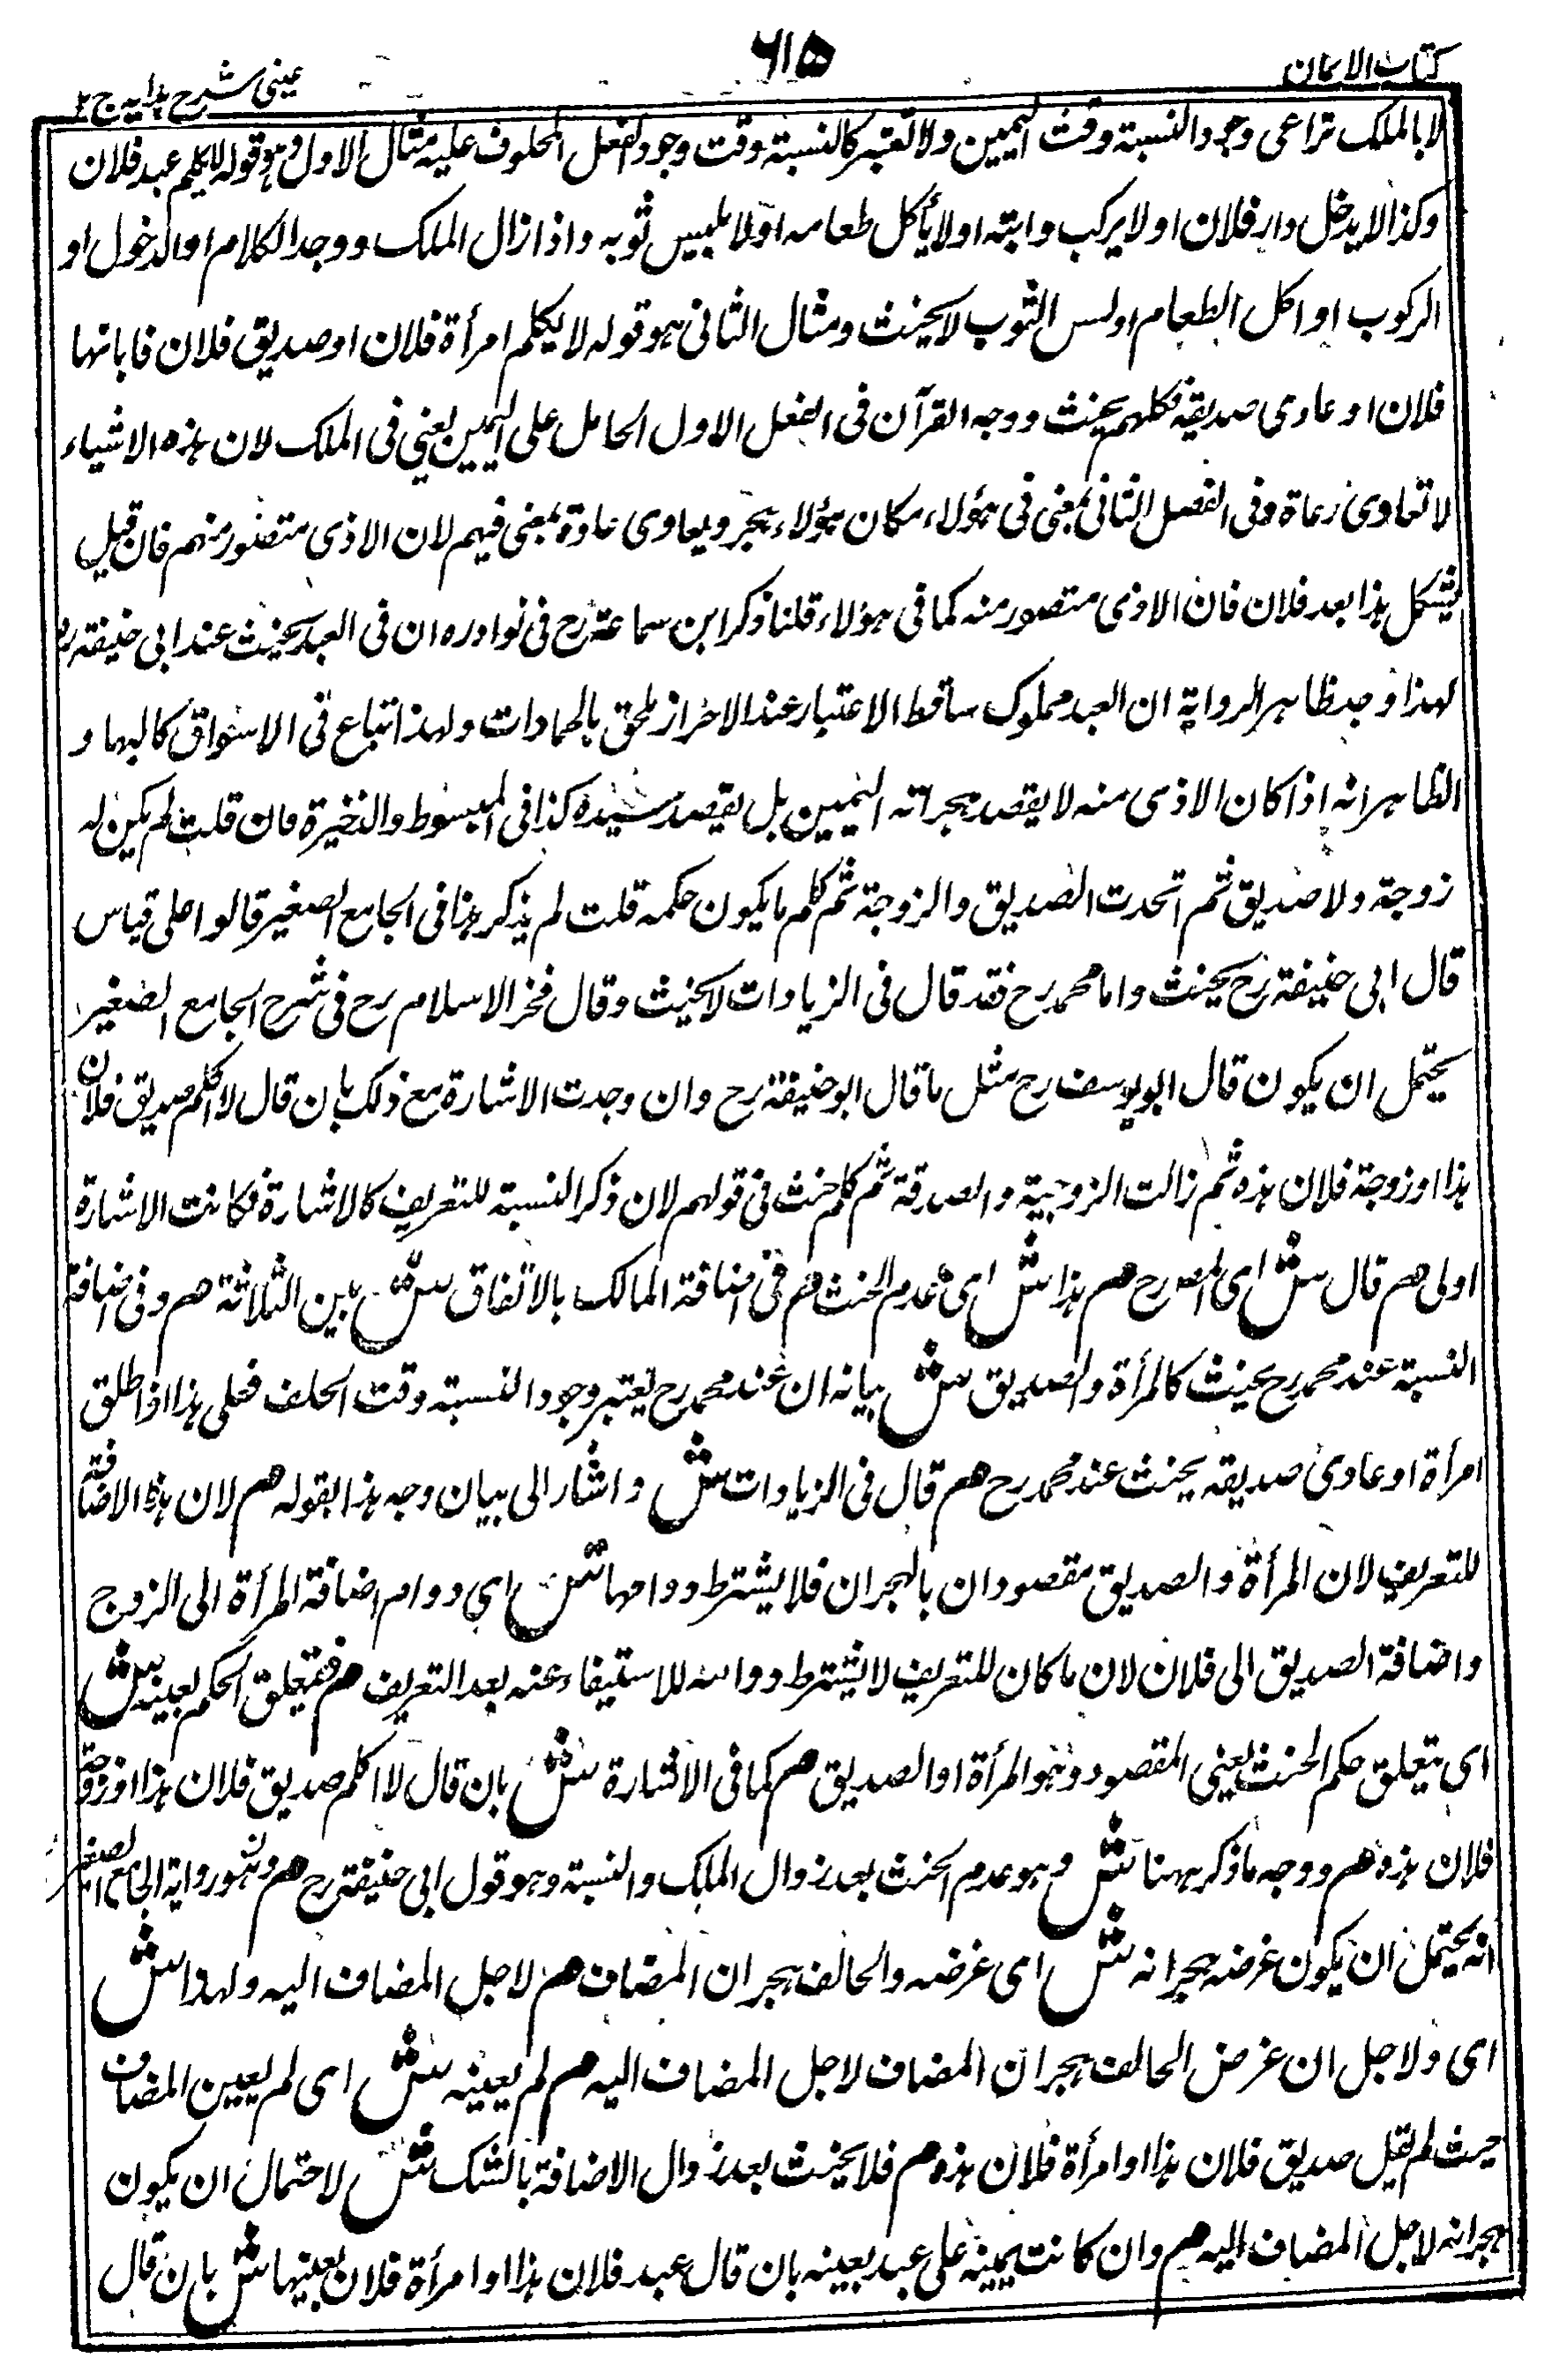 كتاب الايمان
٦١٥
عينى شرح هدايه ج ٢
لا بالملك تراعى وجود النسبة وقت اليمين ولا تعتبر كالنسبة وقت وجود الفعل المحلوف عليه مثال الاول وهو قوله لا يكلم عبد فلان
وكذا لا يدخل دار فلان او لا يركب دابته او لا يأكل طعامه او لا يلبس ثوبه واذا زال الملك ووجد الكلام او الدخول او
الركوب او اكل الطعام او لبس الثوب لا يحنث ومثال الثانى هو قوله لا يكلم امرأة فلان او صديق فلان فابانها
فلان او عادى صديقه فكلهم يحنث ووجه القرآن فى الفعل الاول الحامل على اليمين يعني فى الملك لان هذه الاشياء
لا تعادى عادة وفى الفصل الثانى بمعنى فى هؤلاء مكان هؤلاء يهجر ويعادى عادة بمعنى فيهم لان الاذى متصور منهم فان قيل
يشكل هذا بعد فلان فان الاذى متصور منه كما فى هؤلاء قلنا ذكر ابن سماعة رح فى نوادره ان فى العبد يحنث عند ابى حنيفة رح
لهذا وجه ظاهر الرواية ان العبد مملوك ساقط الاعتبار عند الاحراز ملحق بالجمادات ولهذا تباع فى الاسواق كالبها و
الظاهر انه اذا كان الاذى منه لا يقصد هجرانه اليمين بل يقصد سيده كذا فى المبسوط والذخيرة فان قلت لم يكن له
زوجة ولا صديق ثم اتحدت الصديق والزوجة ثم كلم ما يكون حكمه قلت لم يذكر هذا فى الجامع الصغير قالوا على قياس
قال ابى حنيفة رح يحنث واما محمد رح فقد قال فى الزيادات لا يحنث وقال فخر الاسلام رح فى شرح الجامع الصغير
يحتمل ان يكون قال ابو يوسف رح مثل ما قال ابو حنيفة رح وان وجدت الاشارة مع ذلك بان قال لا اكلم صديق فلان
هذا او زوجة فلان هذه ثم زالت الزوجية والصدقة ثم كلم حنث فى قولهم لان ذكر النسبة للتعريف كالاشارة فكانت الاشارة
اولى هم قال ش اى المص رح هم هذا ش اى عدم الحنث هم فى اضافة المالك بالاتفاق ش بين الثلاثة هم وفى اضافة
النسبة عند محمد رح يحنث كالمرأة والصديق ش بيانه ان عند محمد رح يعتبر وجود النسبة وقت الحلف فعلى هذا اذا طلق
امرأة او عادى صديقه يحنث عند محمد رح هم قال فى الزيادات ش واشار الى بيان وجه هذا بقوله هم لان هذه الاضافة
للتعريف لان المرأة والصديق مقصودان بالهجران فلا يشترط دوامها ش اى دوام اضافة المرأة الى الزوج
واضافة الصديق الى فلان لان ما كان للتعريف لا يشترط دوامه للاستيفاء عنه بعد التعريف هم فيتعلق الحكم بعينه ش
اى يتعلق حكم الحنث يعنى المقصود وهو المرأة او الصديق هم كما فى الاشارة ش بان قال لا اكلم صديق فلان هذا او زوجة
فلان هذه هم ووجه ما ذكر ههنا ش وهو عدم الحنث بعد زوال الملك والنسبة وهو قول ابى حنيفة رح هم وهو رواية الجامع الصغير
انه يحتمل ان يكون غرضه هجرانه ش اى غرضه والحالف هجران المضاف هم لاجل المضاف اليه ولهذا ش
اى ولاجل ان غرض الحالف هجران المضاف لاجل المضاف اليه هم لم يعينه ش اى لم يعين المضاف
حيث لم يقل صديق فلان هذا او امرأة فلان هذه هم فلا يحنث بعد زوال الاضافة بالشك ش لاحتمال ان يكون
هجرانه لاجل المضاف اليه هم وان كانت يمينه على عبد بعينه بان قال عبد فلان هذا او امرأة فلان بعينها ش بان قال